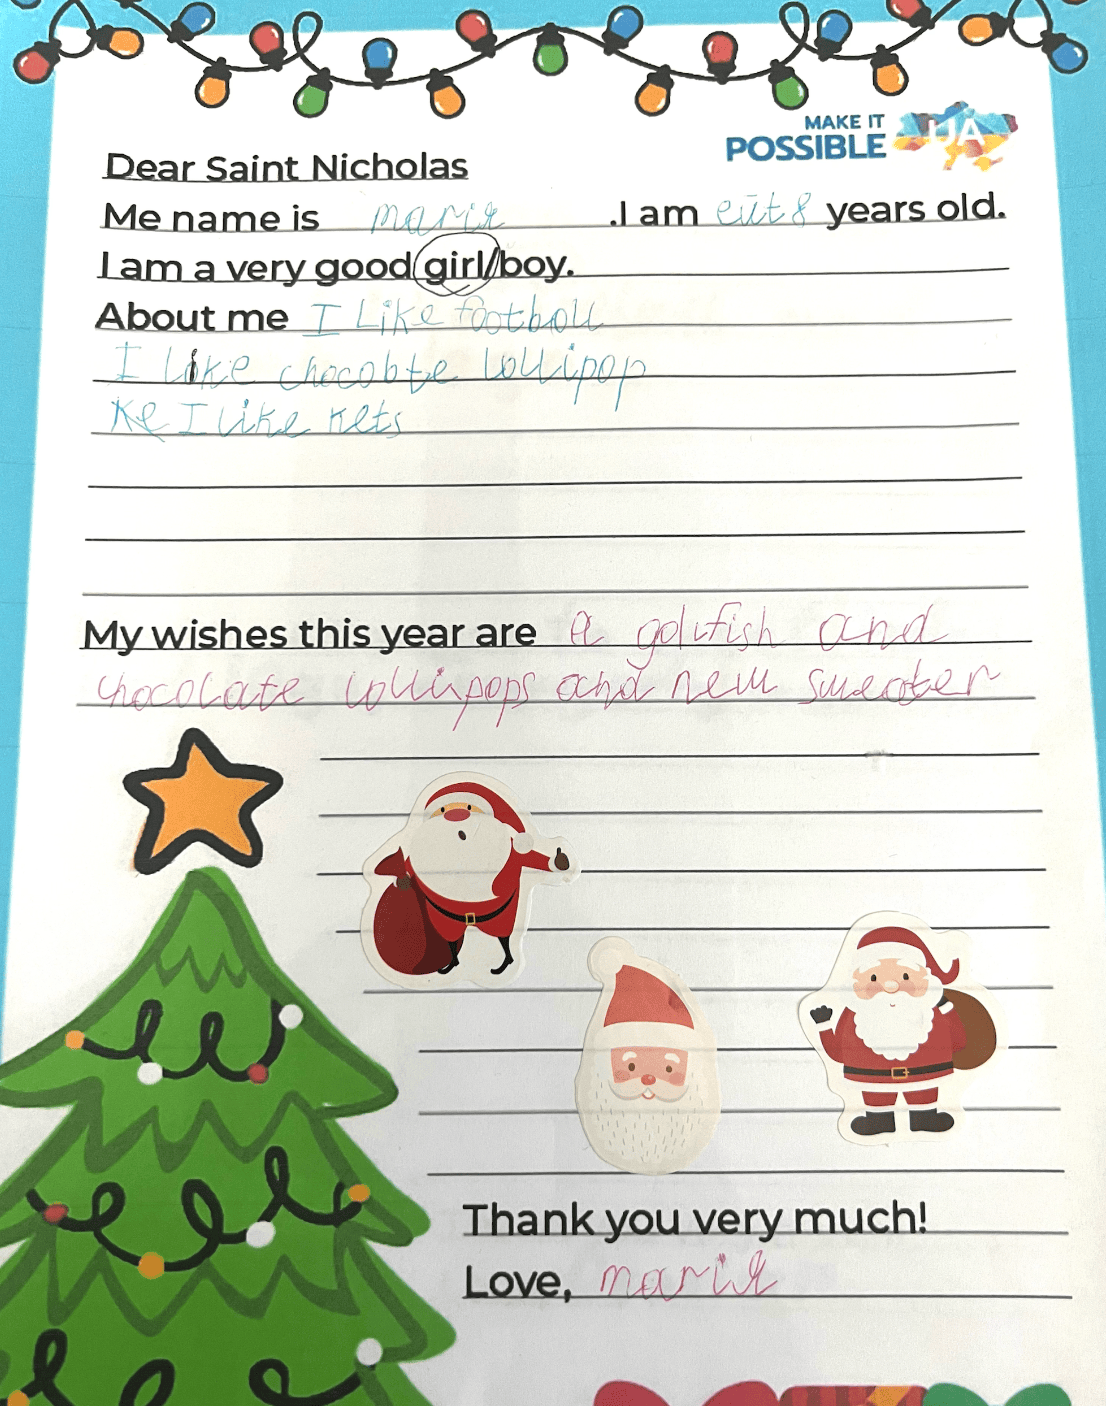 MAKE IT
POSSIBLE UA
Dear Saint Nicholas
Me name is marія .I am eit 8 years old.
I am a very good girl/boy.
About me I Like football
I like chocolate lollipop
I like kets
My wishes this year are a goldfish and
chocolate lollipops and new sweater
Thank you very much!
Love, marія